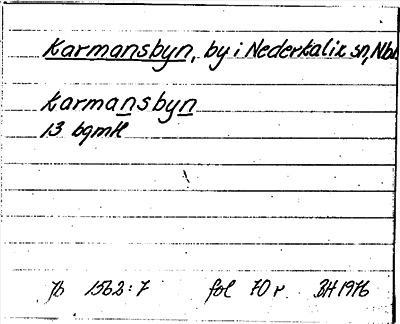 Karmansbyn, by i Nederkalix sn, Nbl.
Karmansbyn
13 bgmtl
Jb 1562:7 fol 70 r. BH 1976